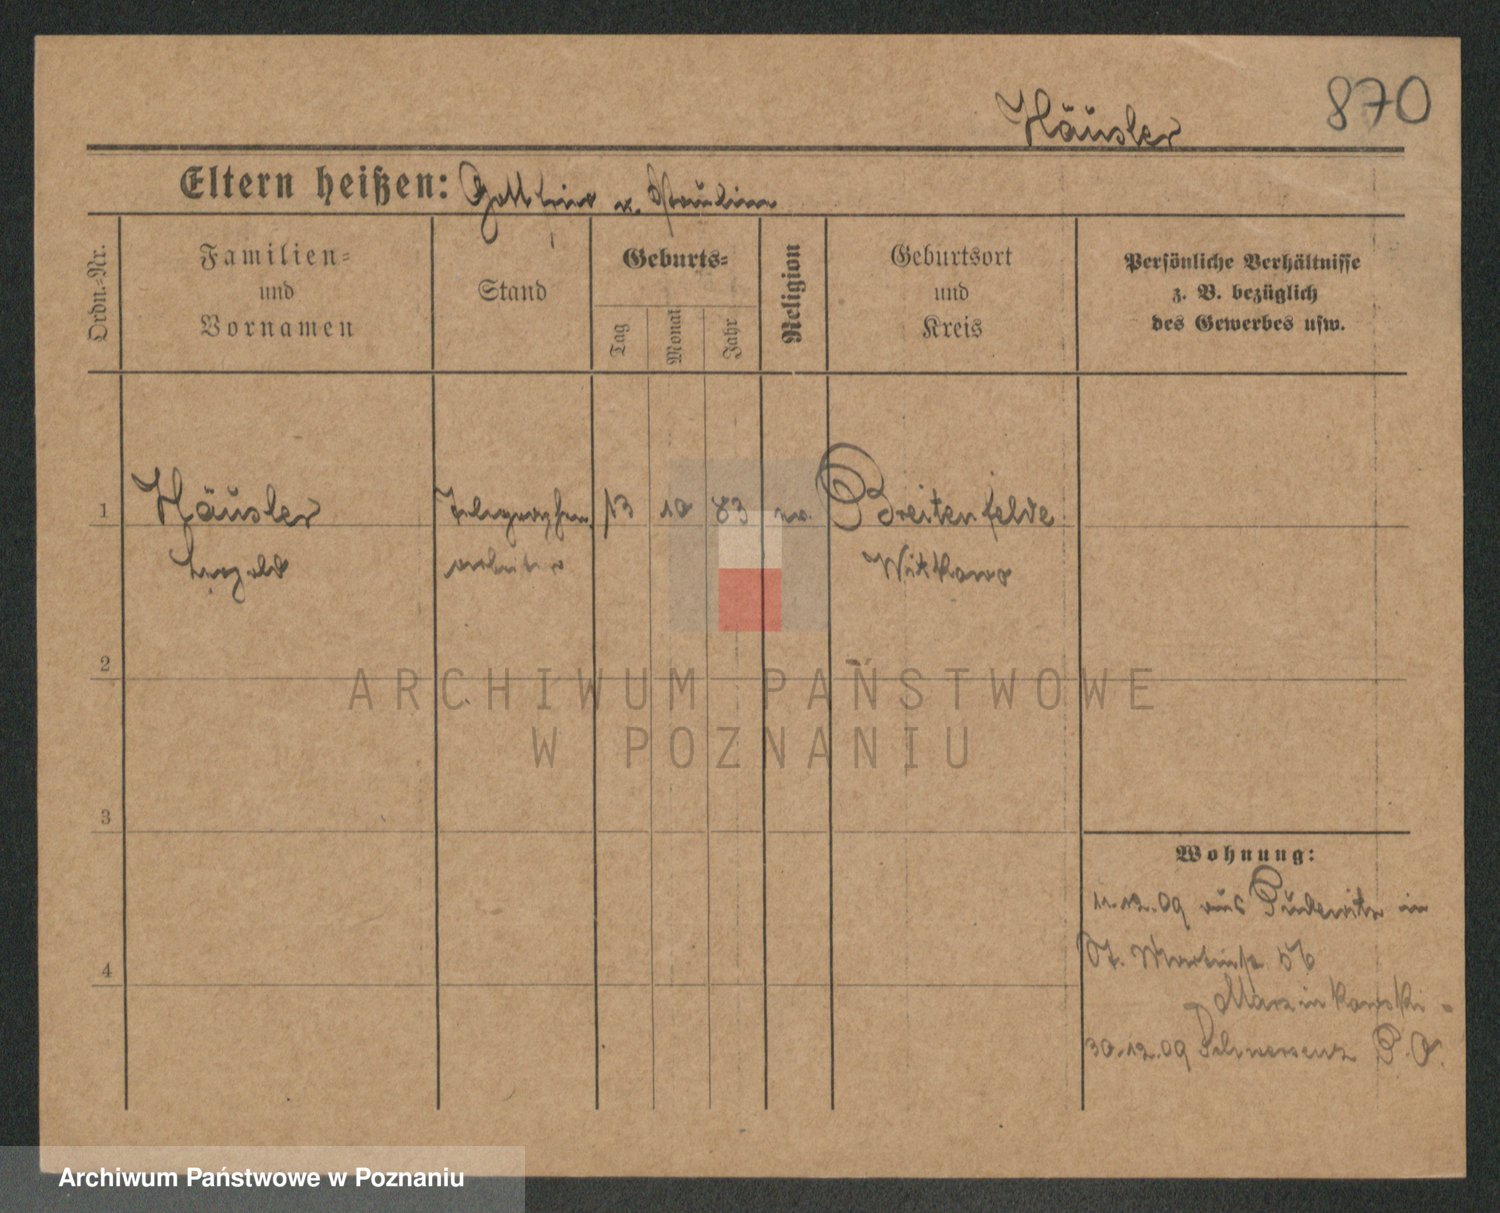 870
Häusler
Eltern heißen: Gottlieb u. Pauline
Ordn.-Nr.
Familien=
und
Vornamen
Stand
Geburts=
Tag
Monat
Jahr
Religion
Geburtsort
und
Kreis
Persönliche Verhältnisse
z. B. bezüglich
des Gewerbes usw.
1 Häusler Telegraphen 13 10 83 ev. Breitenfelde
Leopold arbeiter Witkowo
2
ARCHIWUM PAŃSTWOWE
W POZNANIU
3
Wohnung:
11.12.09 aus Pudewitz in
4
St. Martinstr 56
Marzinkowski
30.12.09 Schwersenz P. O.
Archiwum Państwowe w Poznaniu